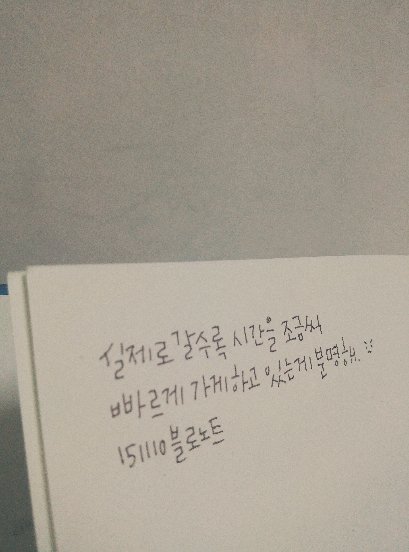 실제로 갈수록 시간을 조금씩
빠르게 가게하고 있는게 분명해 :;
151110 블로노트